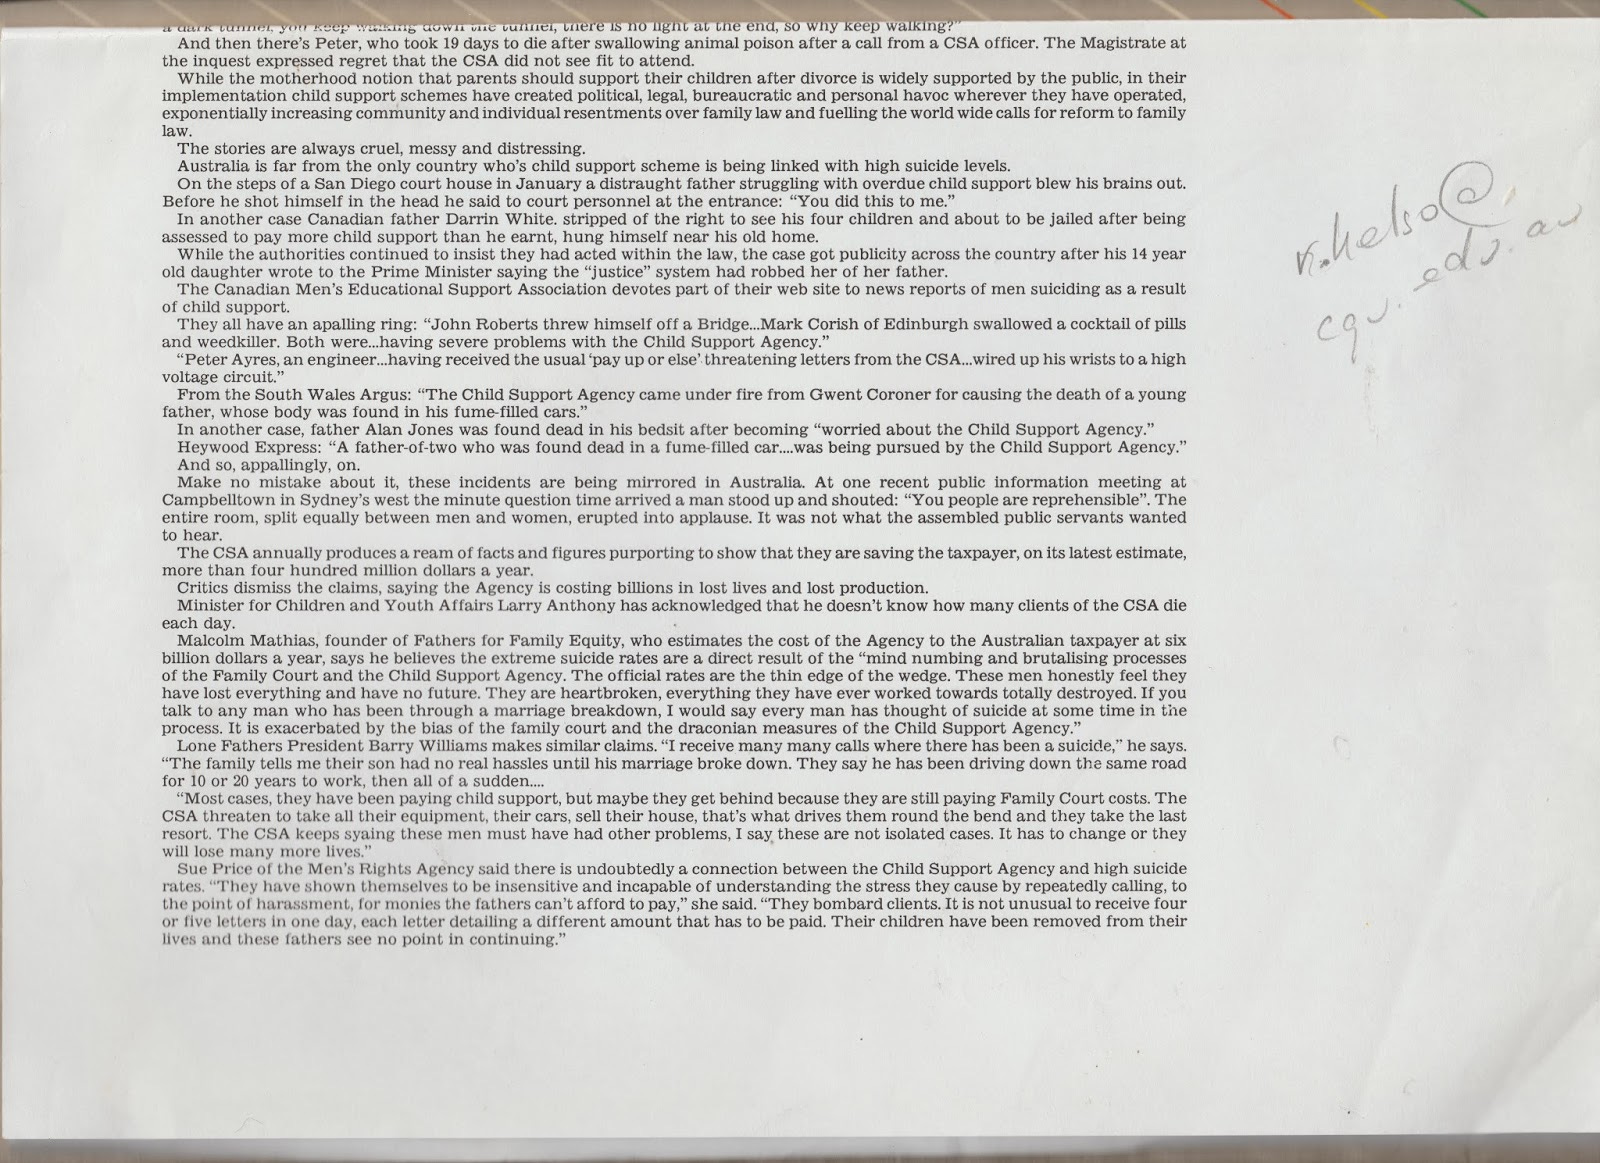 a dark tunnel, you keep walking down the tunnel, there is no light at the end, so why keep walking?"
And then there's Peter, who took 19 days to die after swallowing animal poison after a call from a CSA officer. The Magistrate at
the inquest expressed regret that the CSA did not see fit to attend.
While the motherhood notion that parents should support their children after divorce is widely supported by the public, in their
implementation child support schemes have created political, legal, bureaucratic and personal havoc wherever they have operated,
exponentially increasing community and individual resentments over family law and fuelling the world wide calls for reform to family
law.
The stories are always cruel, messy and distressing.
Australia is far from the only country who's child support scheme is being linked with high suicide levels.
On the steps of a San Diego court house in January a distraught father struggling with overdue child support blew his brains out.
Before he shot himself in the head he said to court personnel at the entrance: "You did this to me."
In another case Canadian father Darrin White. stripped of the right to see his four children and about to be jailed after being
assessed to pay more child support than he earnt, hung himself near his old home.
While the authorities continued to insist they had acted within the law, the case got publicity across the country after his 14 year
old daughter wrote to the Prime Minister saying the "justice" system had robbed her of her father.
The Canadian Men's Educational Support Association devotes part of their web site to news reports of men suiciding as a result
of child support.
They all have an apalling ring: "John Roberts threw himself off a Bridge...Mark Corish of Edinburgh swallowed a cocktail of pills
and weedkiller. Both were...having severe problems with the Child Support Agency."
"Peter Ayres, an engineer...having received the usual 'pay up or else' threatening letters from the CSA...wired up his wrists to a high
voltage circuit."
From the South Wales Argus: "The Child Support Agency came under fire from Gwent Coroner for causing the death of a young
father, whose body was found in his fume-filled cars."
In another case, father Alan Jones was found dead in his bedsit after becoming "worried about the Child Support Agency."
Heywood Express: "A father-of-two who was found dead in a fume-filled car....was being pursued by the Child Support Agency."
And so, appallingly, on.
Make no mistake about it, these incidents are being mirrored in Australia. At one recent public information meeting at
Campbelltown in Sydney's west the minute question time arrived a man stood up and shouted: "You people are reprehensible". The
entire room, split equally between men and women, erupted into applause. It was not what the assembled public servants wanted
to hear.
The CSA annually produces a ream of facts and figures purporting to show that they are saving the taxpayer, on its latest estimate,
more than four hundred million dollars a year.
Critics dismiss the claims, saying the Agency is costing billions in lost lives and lost production.
Minister for Children and Youth Affairs Larry Anthony has acknowledged that he doesn't know how many clients of the CSA die
each day.
Malcolm Mathias, founder of Fathers for Family Equity, who estimates the cost of the Agency to the Australian taxpayer at six
billion dollars a year, says he believes the extreme suicide rates are a direct result of the "mind numbing and brutalising processes
of the Family Court and the Child Support Agency. The official rates are the thin edge of the wedge. These men honestly feel they
have lost everything and have no future. They are heartbroken, everything they have ever worked towards totally destroyed. If you
talk to any man who has been through a marriage breakdown, I would say every man has thought of suicide at some time in the
process. It is exacerbated by the bias of the family court and the draconian measures of the Child Support Agency."
Lone Fathers President Barry Williams makes similar claims. "I receive many many calls where there has been a suicide," he says.
"The family tells me their son had no real hassles until his marriage broke down. They say he has been driving down the same road
for 10 or 20 years to work, then all of a sudden....
"Most cases, they have been paying child support, but maybe they get behind because they are still paying Family Court costs. The
CSA threaten to take all their equipment, their cars, sell their house, that's what drives them round the bend and they take the last
resort. The CSA keeps syaing these men must have had other problems, I say these are not isolated cases. It has to change or they
will lose many more lives."
Sue Price of the Men's Rights Agency said there is undoubtedly a connection between the Child Support Agency and high suicide
rates. "They have shown themselves to be insensitive and incapable of understanding the stress they cause by repeatedly calling, to
the point of harassment, for monies the fathers can't afford to pay," she said. "They bombard clients. It is not unusual to receive four
or five letters in one day, each letter detailing a different amount that has to be paid. Their children have been removed from their
lives and these fathers see no point in continuing."
K.Kelso@
cqu.edu.au